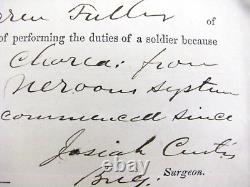 ren Fuller of
of performing the duties of a soldier because
Chorea: from
nervous system
commenced since
Josiah Curtis
Surgeon.
Brig.